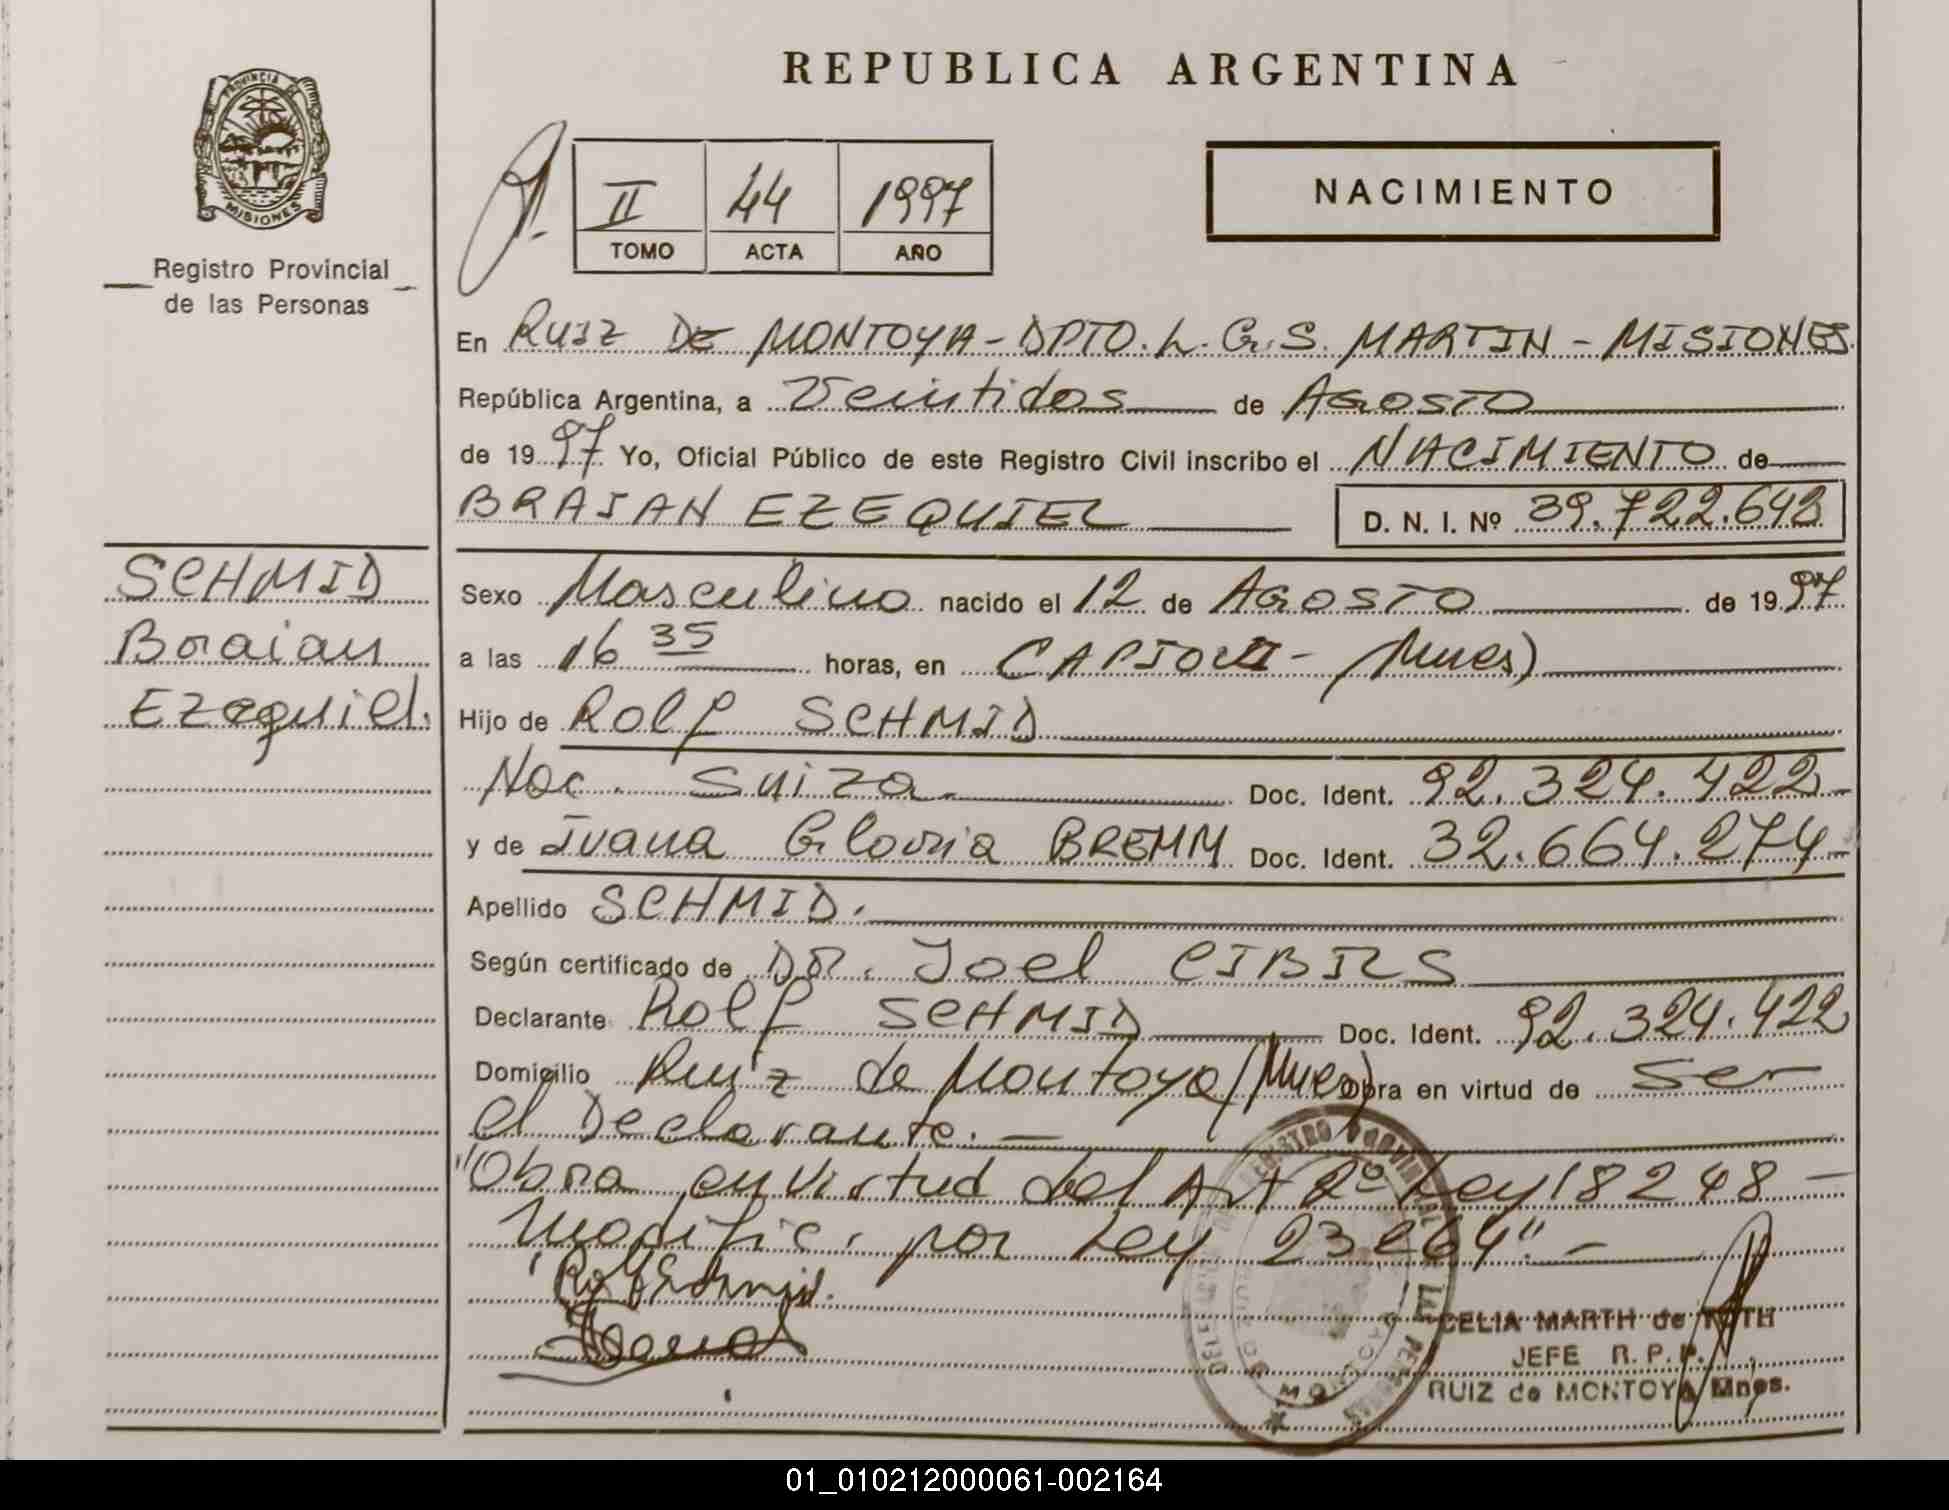 REPUBLICA ARGENTINA
PROVINCIA DE
MISIONES
Registro Provincial
de las Personas
II 44 1997
TOMO ACTA AÑO
NACIMIENTO
En RUIZ DE MONTOYA - DPTO. L. G. S. MARTIN - MISIONES
República Argentina, a Veintidos de AGOSTO
de 1997 Yo, Oficial Público de este Registro Civil inscribo el NACIMIENTO de
BRAIAN EZEQUIEL D. N. I. Nº 39.722.643
SCHMID
Braian
Ezequiel.
Sexo Masculino nacido el 12 de AGOSTO de 1997
a las 16 35 horas, en CAPIOVI - Mnes)
Hijo de Rolf SCHMID
Nac. Suiza Doc. Ident. 92.324.422
y de Ivana Gloria BREMM Doc. Ident. 32.664.274
Apellido SCHMID.
Según certificado de DR. Joel CIBILS
Declarante Rolf SCHMID Doc. Ident. 92.324.422
Domicilio Ruiz de Montoya (Mnes) Obra en virtud de ser
el Declarante. —
"Obra en virtud del Art 2º Ley 18248 —
modific. por Ley 23264". —
Rolf Schmid.
CELIA MARTH de TOTH
JEFE R. P. P.
RUIZ de MONTOYA Mnes.
01_010212000061-002164